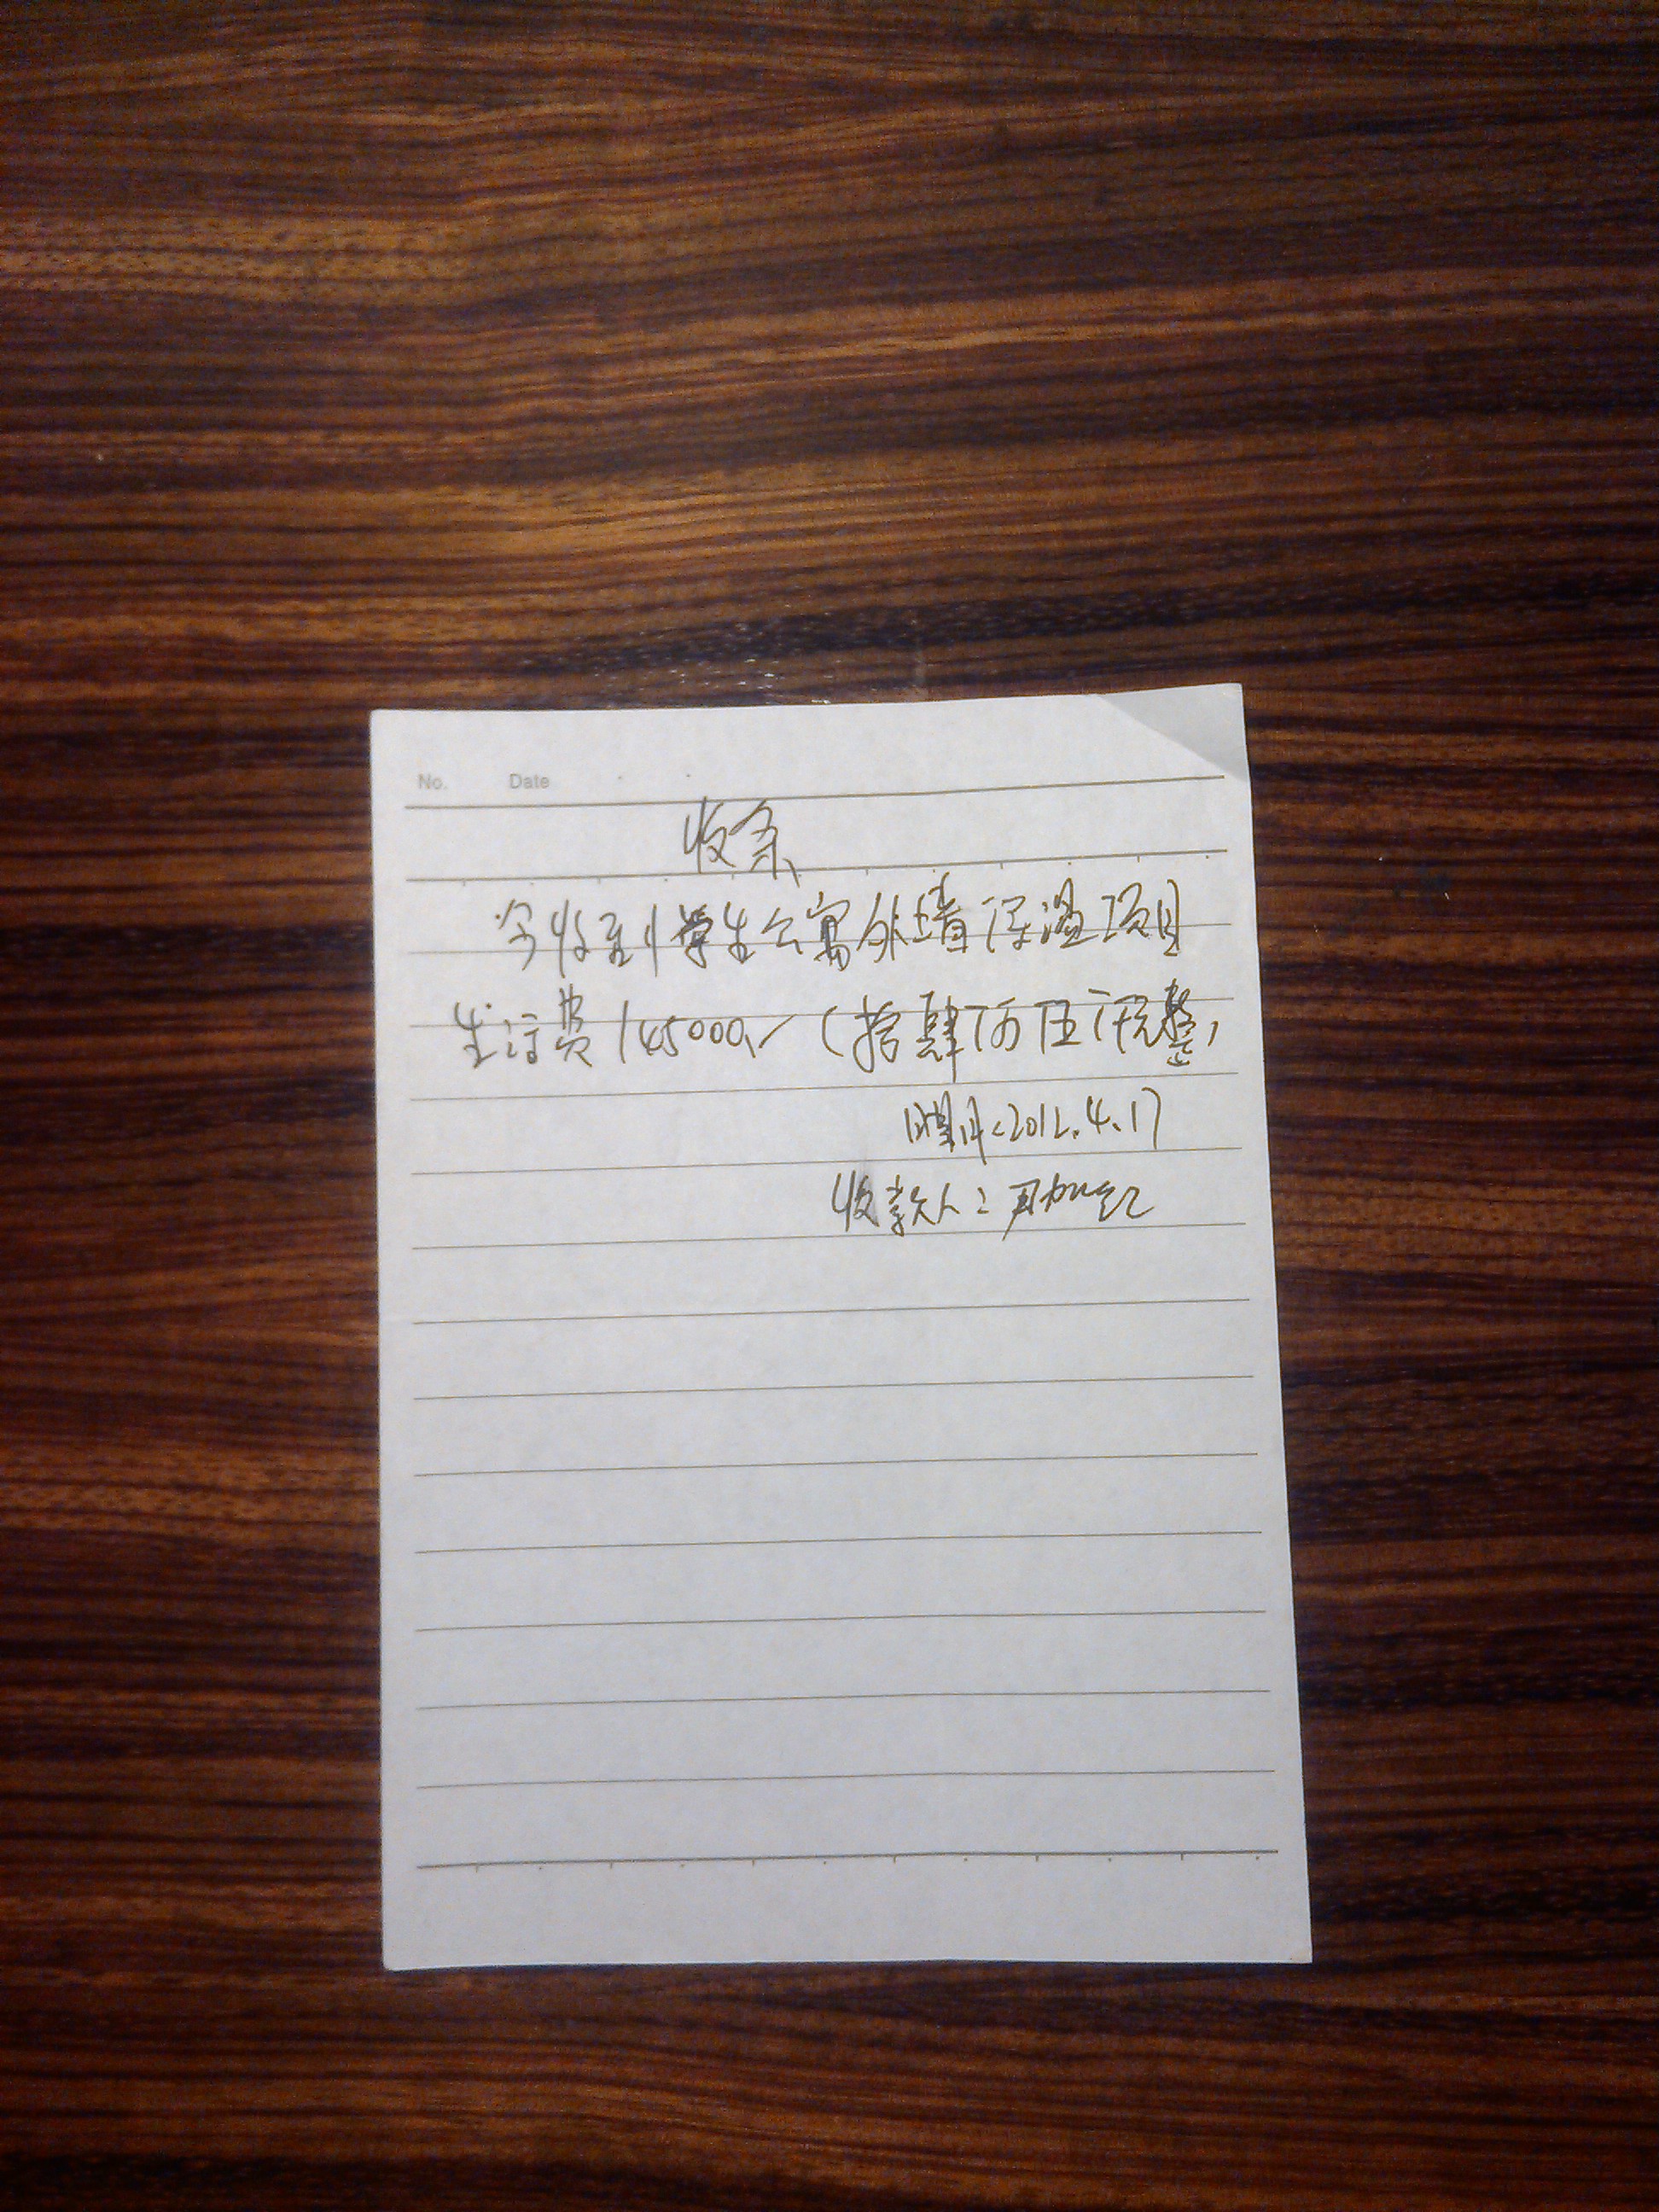 No. Date
收条
今收到学生公寓外墙保温项目
生活费145000.-(拾肆万伍仟元整)
日期:2012.4.17
收款人: